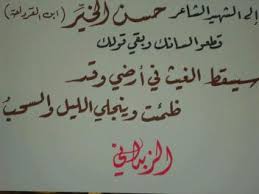 إلى الشهيد الشاعر حسن الخيّر (ابن القرداحة)
قطعوا لسانك وبقي قولك
سيسقط الغيث في أرضي وقد
ظمئت وينجلي الليل والسحب
الزبداني